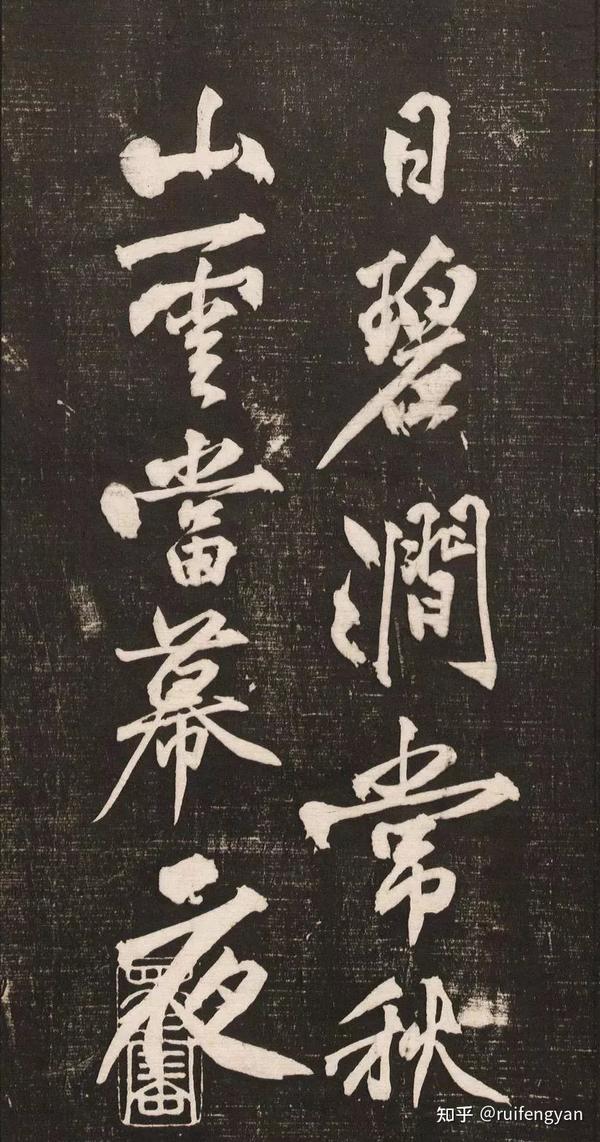 日碧澗常秋
山雲當幕夜
知乎 @ruifengyan